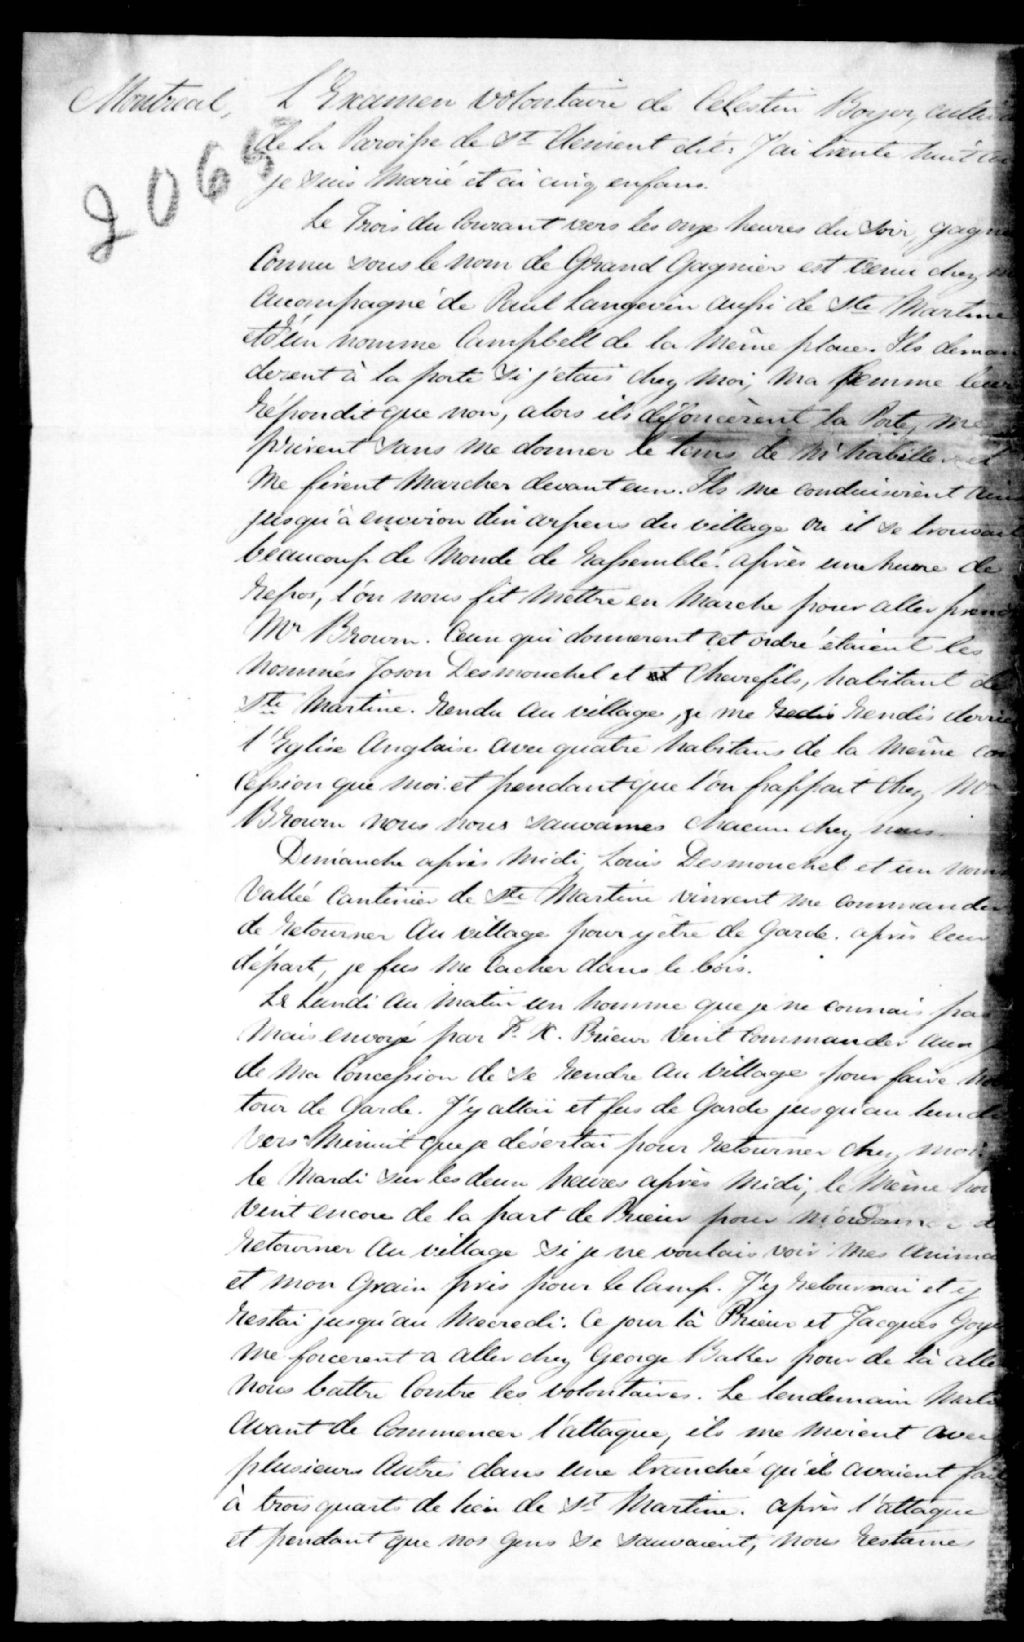 Montreal,
2065
L'Examen volontaire de Celestin Boyer,
de la Paroisse de St Clement dit: J'ai trente huit
je suis Marié et ai cinq enfans.
Le Trois du Courant vers les onze heures du Soir,
Connu sous le nom de Grand Gagnier est venu chez
accompagné de Paul Langevin aussi de Ste Martine
et d'un nomme Campbell de la Même place. Ils deman
derent à la porte si j'etais chez moi, ma femme leur
répondit que non, alors ils défoncèrent la Porte, me
prirent sans me donner le tems de m'habiller et
Me firent Marcher devant eux. Ils me conduisirent
jusqu'à environ dix arpens du village ou il se trouvait
beaucoup de Monde de rassemblé. après une heure de
repos, l'on nous fit Mettre en Marche pour aller
Mr Brown. Ceux qui donnerent cet ordre étaient les
nommés Joson Desmouchel et et Chevrefils, habitant de
Ste Martine. Rendu au village, je me redis rendis
l'Eglise Anglaise avec quatre habitans de la même con
cession que moi et pendant que l'on frappait chez Mr
Brown nous nous sauvames chacun chez nous.
Dimanche après Midi, Louis Desmouchel et un
Vallée Cantinier de Ste Martine vinrent me commander
de retourner au village pour y être de Garde. après leur
départ, je fus me cacher dans le bois.
Le Lundi au matin un homme que je ne connais pas
Mais envoyé par F. X. Prieur vint Commander aux
de ma Concession de se rendre au village pour faire
tour de Garde. J'y allai et fus de Garde jusqu'au lundi
vers Minuit que je désertai pour retourner chez moi.
le Mardi sur les deux heures après Midi, le Même
vint encore de la part de Prieur pour m'ordonner de
retourner au village si je ne voulais voir mes
et mon Grain pris pour le Camp. J'y retournai et y
restai jusqu'au Mecredi. Ce jour là Prieur et Jacques
me forcerent a aller chez George Baker pour de là
nous battre contre les volontaires. Le lendemain
avant de commencer l'attaque, ils me mirent avec
plusieurs autres dans une tranchée qu'ils avaient
à trois quarts de lieu de St Martine. après l'attaque
et pendant que nos gens se sauvaient, nous restames